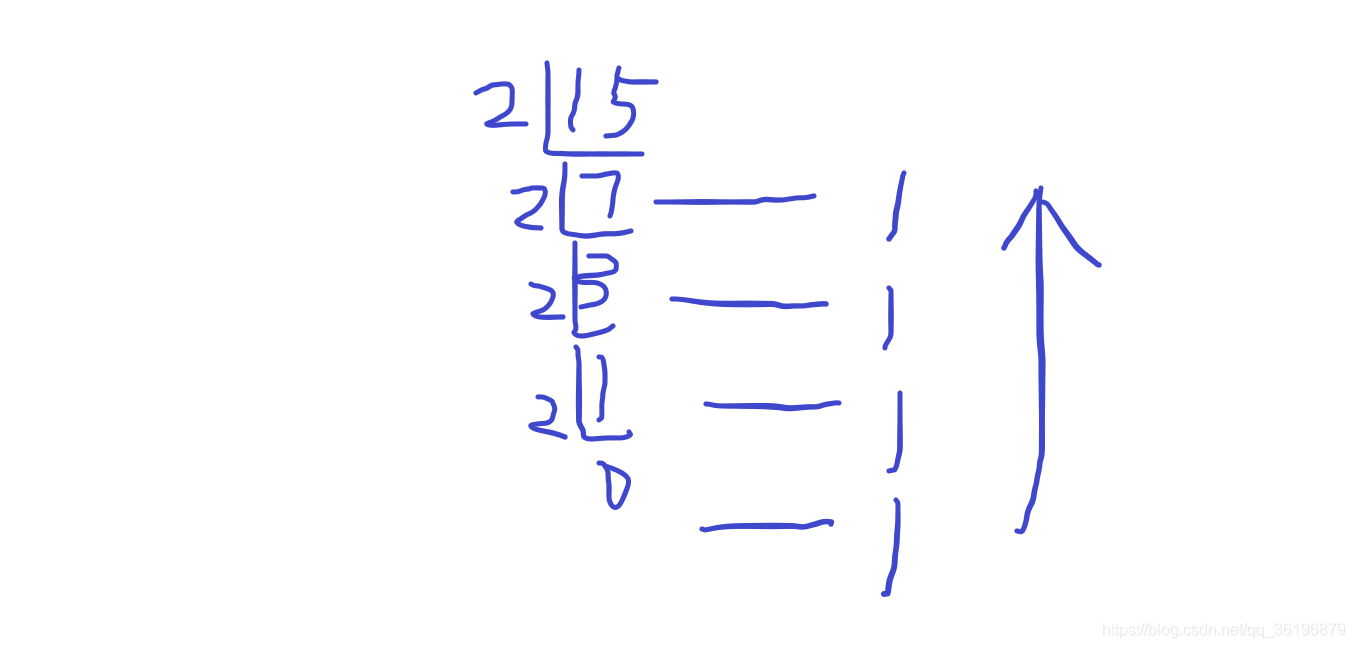 2 15
2 7 1
2 3 1
2 1 1
0 1
https://blog.csdn.net/qq_36196879